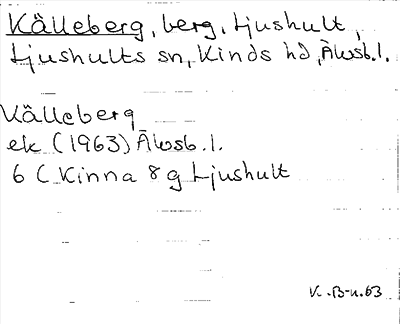 Källeberg, berg, Ljushult,
Ljushults sn, Kinds hd, Älvsb.l.
Källeberg
ek (1963) Älvsb.l.
6 C Kinna 8 g Ljushult
K.B-n.63